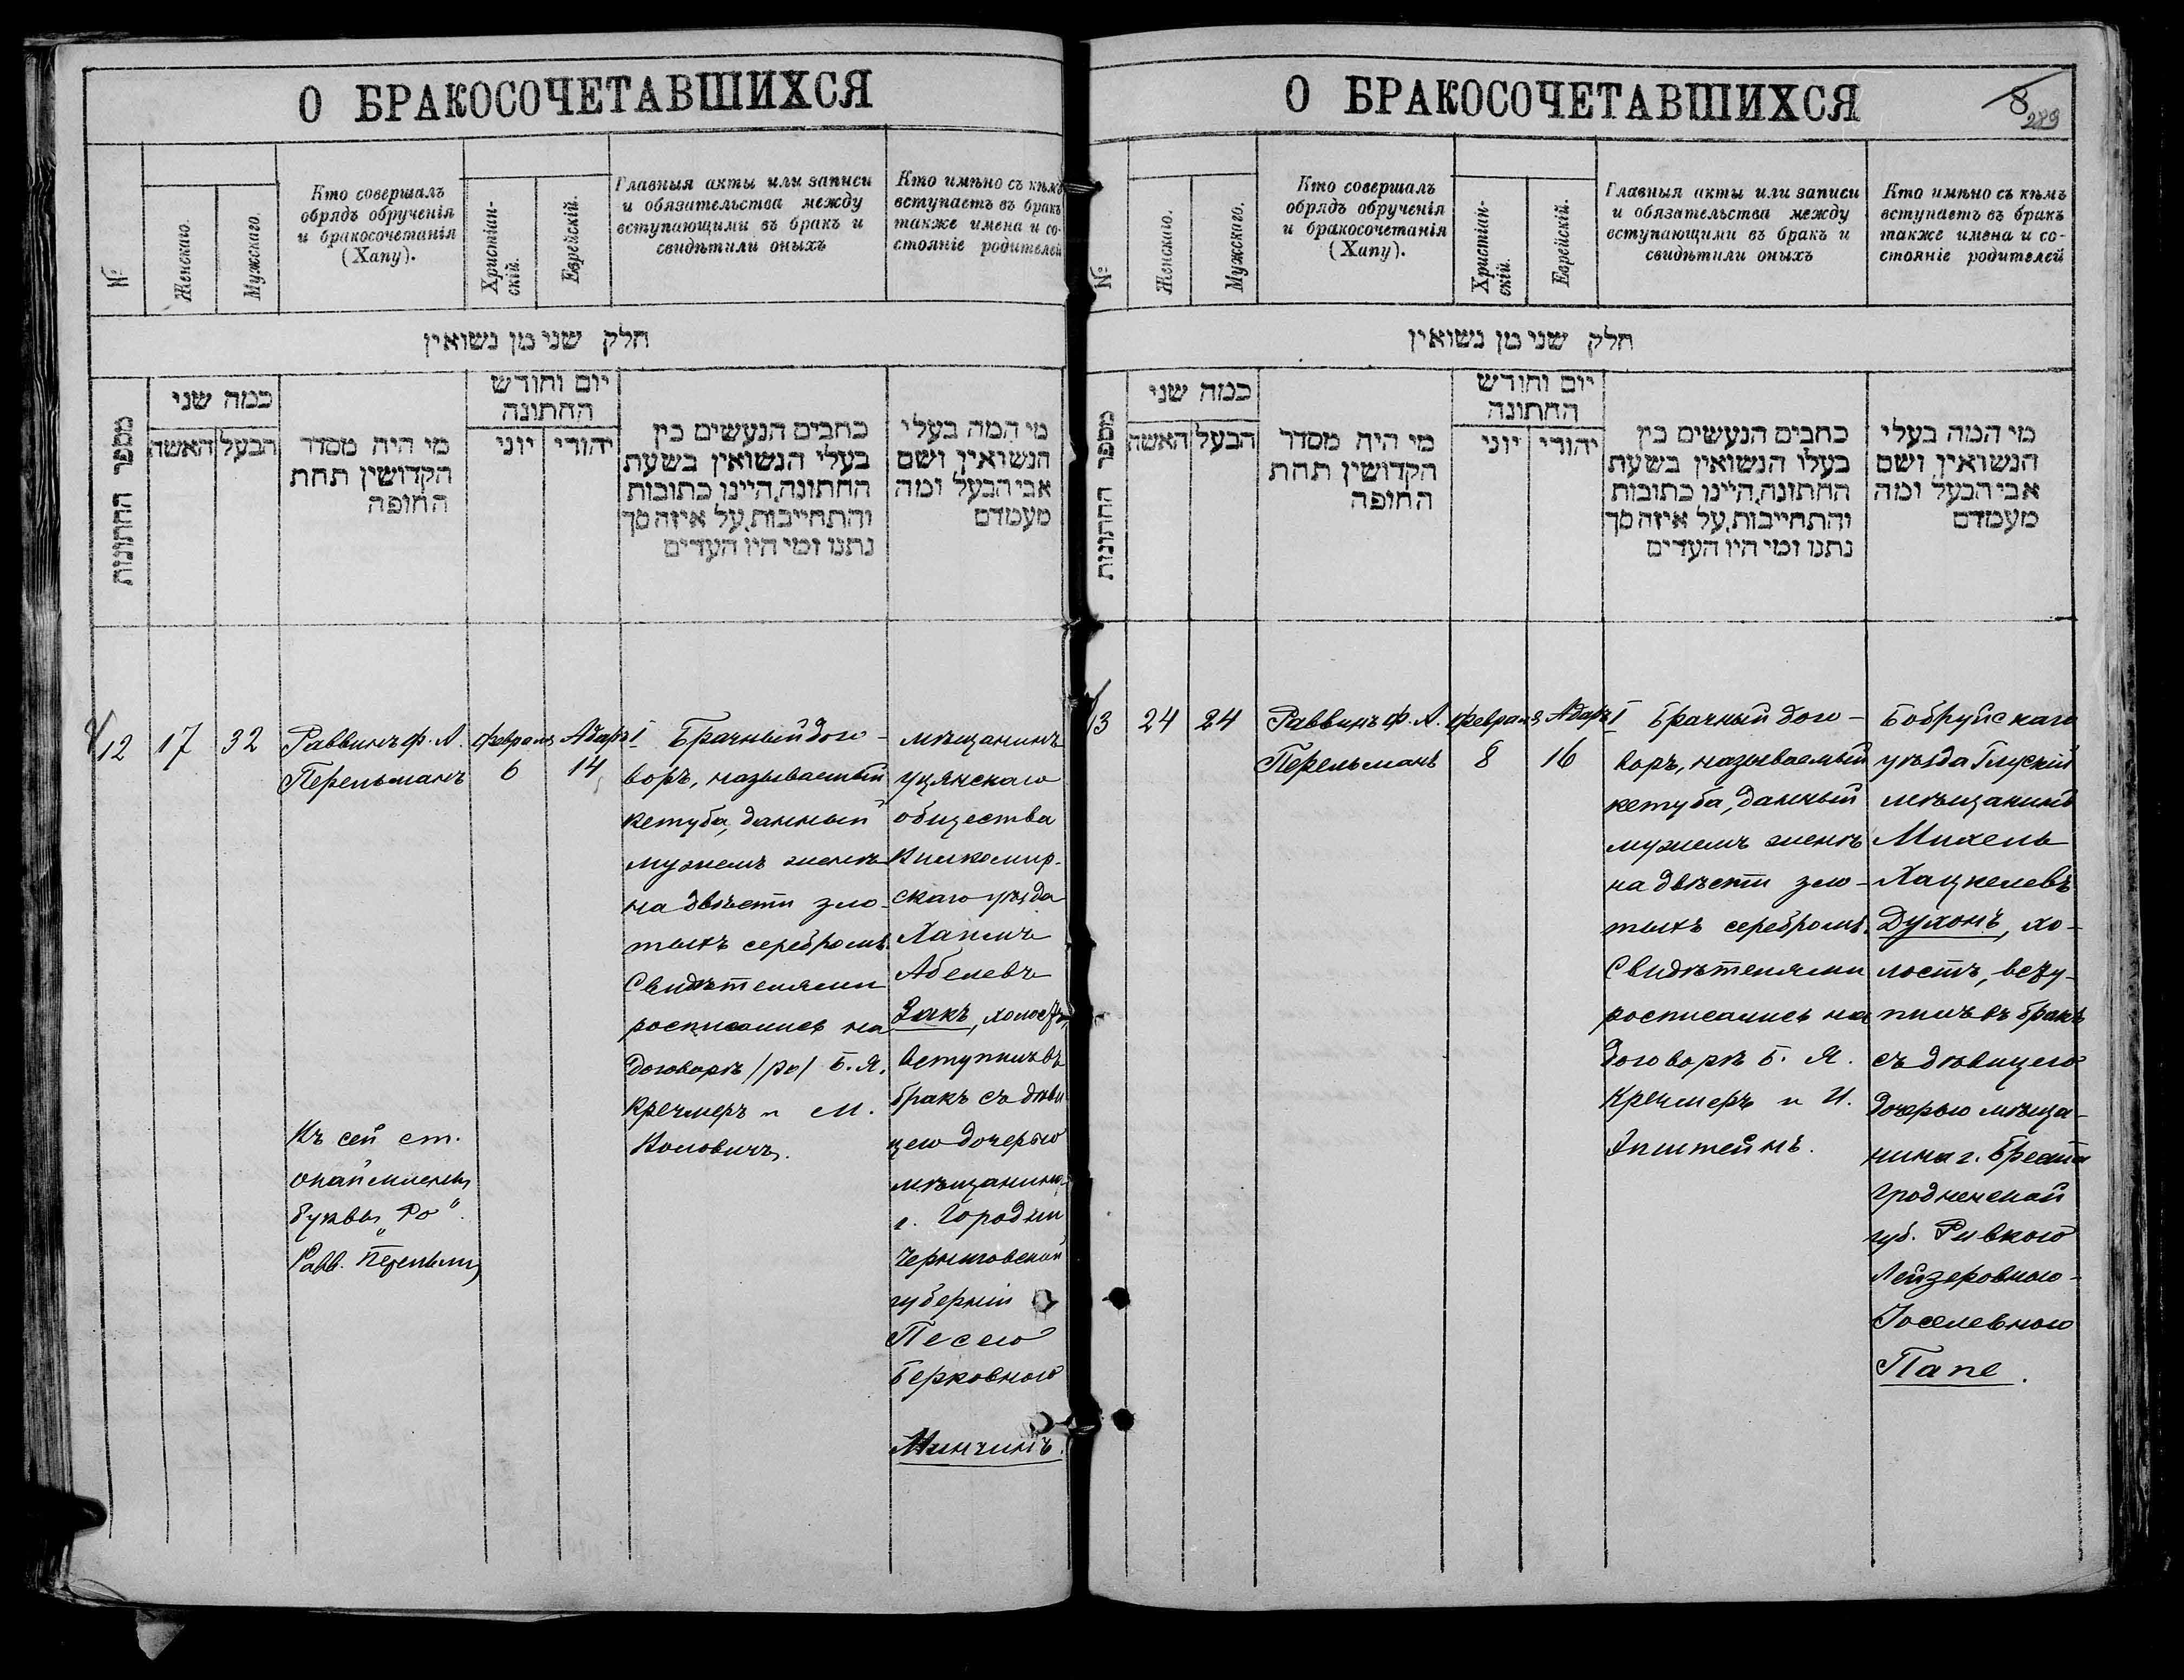 О БРАКОСОЧЕТАВШИХСЯ
№
Женскаго.
Мужскаго.
Кто совершалъ
обрядъ обрученія
и бракосочетанія
(Хапу).
Христіан-
скій.
Еврейскій.
Главныя акты или записи
и обязательства между
вступающими въ бракъ и
свидѣтили оныхъ
Кто имѣно съ кѣмъ
вступаетъ въ бракъ
также имена и со-
стояніе родителей
חלק שני מן נשואין
מספר החתונות
כמה שני
האשה
הבעל
מי היה מסדר
הקדושין תחת
החופה
יום וחודש
החתונה
יוני
יהודי
כתבים הנעשים בין
בעלי הנשואין בשעת
החתונה, היינו כתובות
והתחייבות, על איזה סך
נתנו ומי היו העדים
מי המה בעלי
הנשואין, ושם
אבי הבעל ומה
מעמדם
12
17
32
Раввинъ Ф. А.
Перельманъ
Февраль
6
Адаръ I
14
Брачный дого-
воръ, называемый
кетуба, данный
мужемъ женѣ
на двѣсти зло-
тыхъ серебромъ.
Свидѣтелями
росписались на
договорѣ /ро/ Б. Я.
Кречмеръ и М.
Воловичъ.
мѣщанинъ
Уцянскаго
общества
Вилкомир-
скаго уѣзда
Хаимъ
Абелевъ
Закъ, холостъ,
вступилъ въ
бракъ съ дѣви
цею дочерью
мѣщанина
г. Городни
Черниговской
губерніи
Песею
Берковною
Минчинъ.
Къ сей ст.
буквы „Ро“.
Равв. Перельманъ
О БРАКОСОЧЕТАВШИХСЯ
8
289
№
Женскаго.
Мужскаго.
Кто совершалъ
обрядъ обрученія
и бракосочетанія
(Хапу).
Христіан-
скій.
Еврейскій.
Главныя акты или записи
и обязательства между
вступающими въ бракъ и
свидѣтили оныхъ
Кто имѣно съ кѣмъ
вступаетъ въ бракъ
также имена и со-
стояніе родителей
חלק שני מן נשואין
מספר החתונות
כמה שני
האשה
הבעל
מי היה מסדר
הקדושין תחת
החופה
יום וחודש
החתונה
יוני
יהודי
כתבים הנעשים בין
בעלו הנשואין בשעת
החתונה, היינו כתובות
והתחייבות, על איזה סך
נתנו ומי היו העדים
מי המה בעלי
הנשואין, ושם
אבי הבעל ומה
מעמדם
13
24
24
Раввинъ Ф. А.
Перельманъ
Февраль
8
Адаръ I
16
Брачный дого-
воръ, называемый
кетуба, данный
мужемъ женѣ
на двѣсти зло-
тыхъ серебромъ.
Свидѣтелями
росписались на
договорѣ Б. Я.
Кречмеръ и И.
Эпштейнъ.
Бобруйскаго
уѣзда Глускій
мѣщанинъ
Михель
Хацкелевъ
Духонъ, хо-
лостъ, всту-
пилъ въ бракъ
съ дѣвицею
дочерью мѣща-
нина г. Бреста
Гродненской
губ. Ривкою
Лейзеровною-
Іоселевною
Папе.